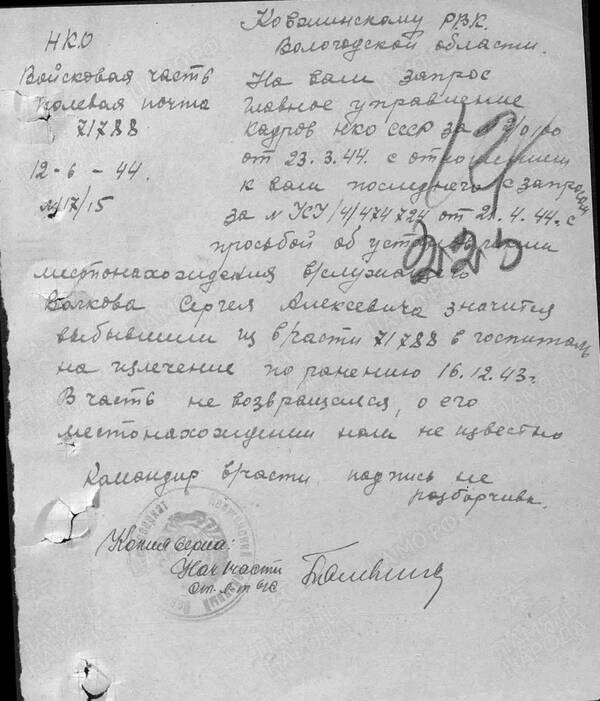 НКО
Войсковая часть
полевая почта
71788
12-6-44.
№17/15
РВК.
Вологодской области.
На ваш запрос
Главное управление
Кадров НКО СССР за №
от 23.3.44. с отношением
к вам последнего с запросом
за № УСУ/4/474724 от 21.4.44. с
просьбой об установлении
местонахождения в/служащего
Волкова Сергея Алексеевича значится
выбывшим из в/части 71788 в госпиталь
на излечение по ранению 16.12.43г.
В часть не возвращался, о его
местонахождении нам не известно
Командир в/части подпись не
разборчива.
Копия верна:
Нач 1 части
225